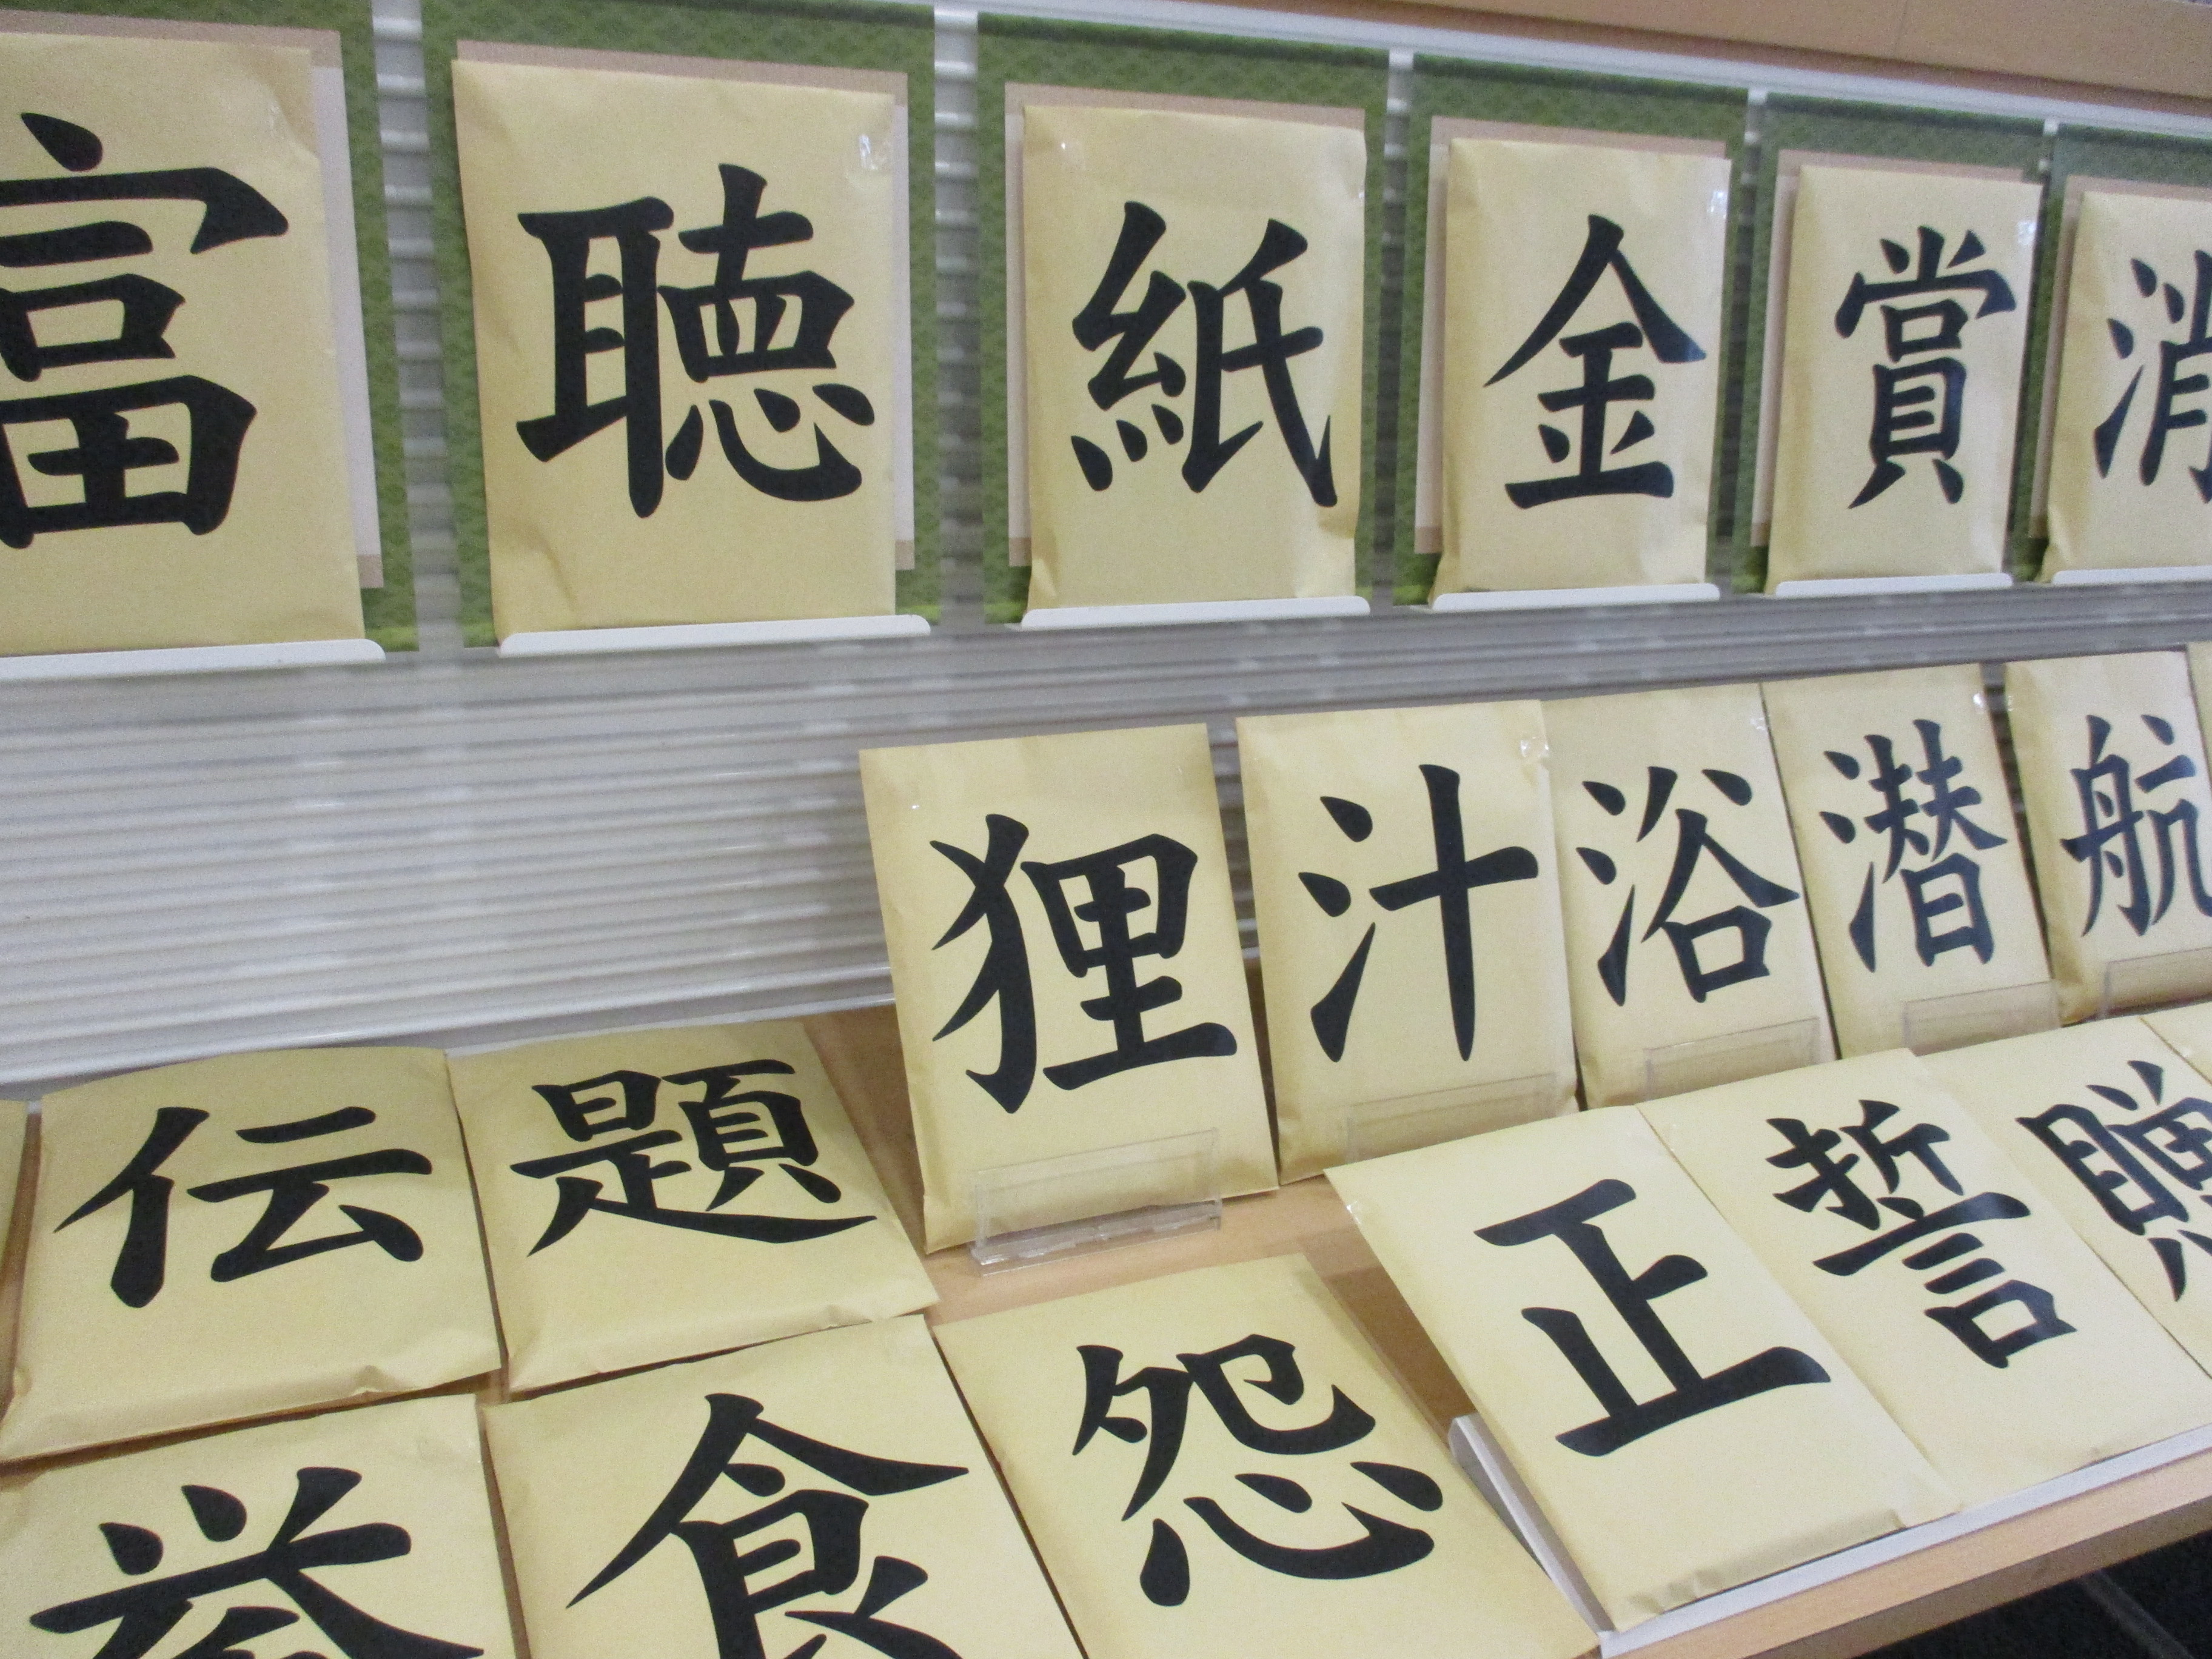 富 聴 紙 金 賞 消
狸 汁 浴 潜 航
伝 題 正 誓
挙 食 怨